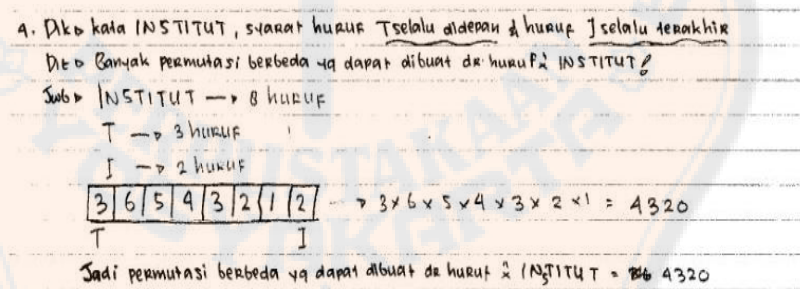 4. Dik▷ kata INSTITUT, syarat huruf T selalu didepan & huruf I selalu terakhir
Dit▷ Banyak permutasi berbeda yg dapat dibuat dr huruf² INSTITUT!
Jwb▷ INSTITUT → 8 huruf
T → 3 huruf
I → 2 huruf
3 6 5 4 3 2 1 2 → 3 × 6 × 5 × 4 × 3 × 2 × 1 = 4320
T I
Jadi permutasi berbeda yg dapat dibuat dr huruf² INSTITUT = 4320